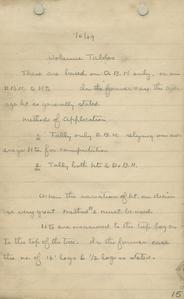 Volume Tables
These are based on D.B.H only, or on
D.B.H. & Hts. In the former case the aver-
age ht. is generally stated.
Methods of Application
1 Tally only D.B.H. relying on av-
erage Hts for computation
2 Tally both hts & D.B.H.
When the variation of ht. on
is very great method 2 must be used.
Hts are measured to the top log or
to the top of the tree. In the former case
the no. of 16' logs & 1/2 logs is stated.
15